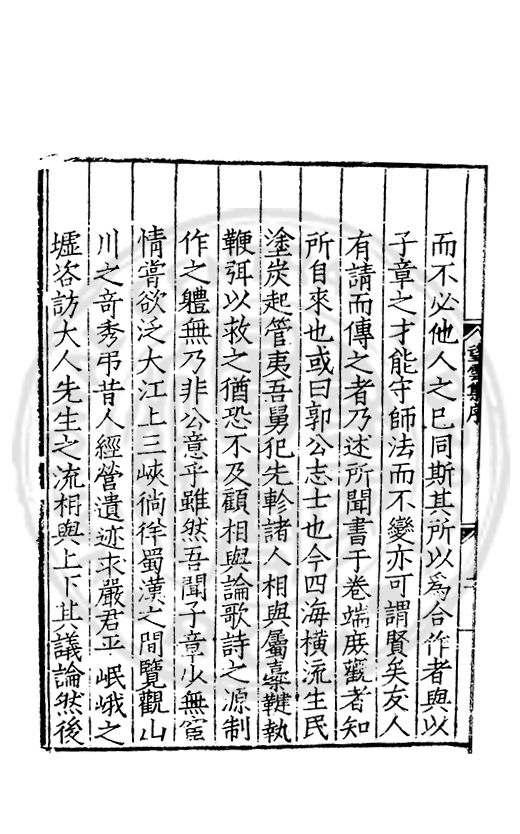 而不必他人之已同斯其所以為合作者與以
子章之才能守師法而不變亦可謂賢矣友人
有請而傳之者乃述所聞書于卷端庶觀者知
所自來也或曰郭公志士也今四海橫流生民
塗炭起管夷吾舅犯先軫諸人相與屬櫜鞬執
鞭弭以救之猶恐不及顧相與論歌詩之源制
作之軆無乃非公意乎雖然吾聞子章少無宦
情嘗欲泛大江上三峽徜徉蜀漢之間覽觀山
川之奇秀弔昔人經營遺迹求嚴君平岷峨之
墟咨訪大人先生之流相與上下其議論然後
望雲集序